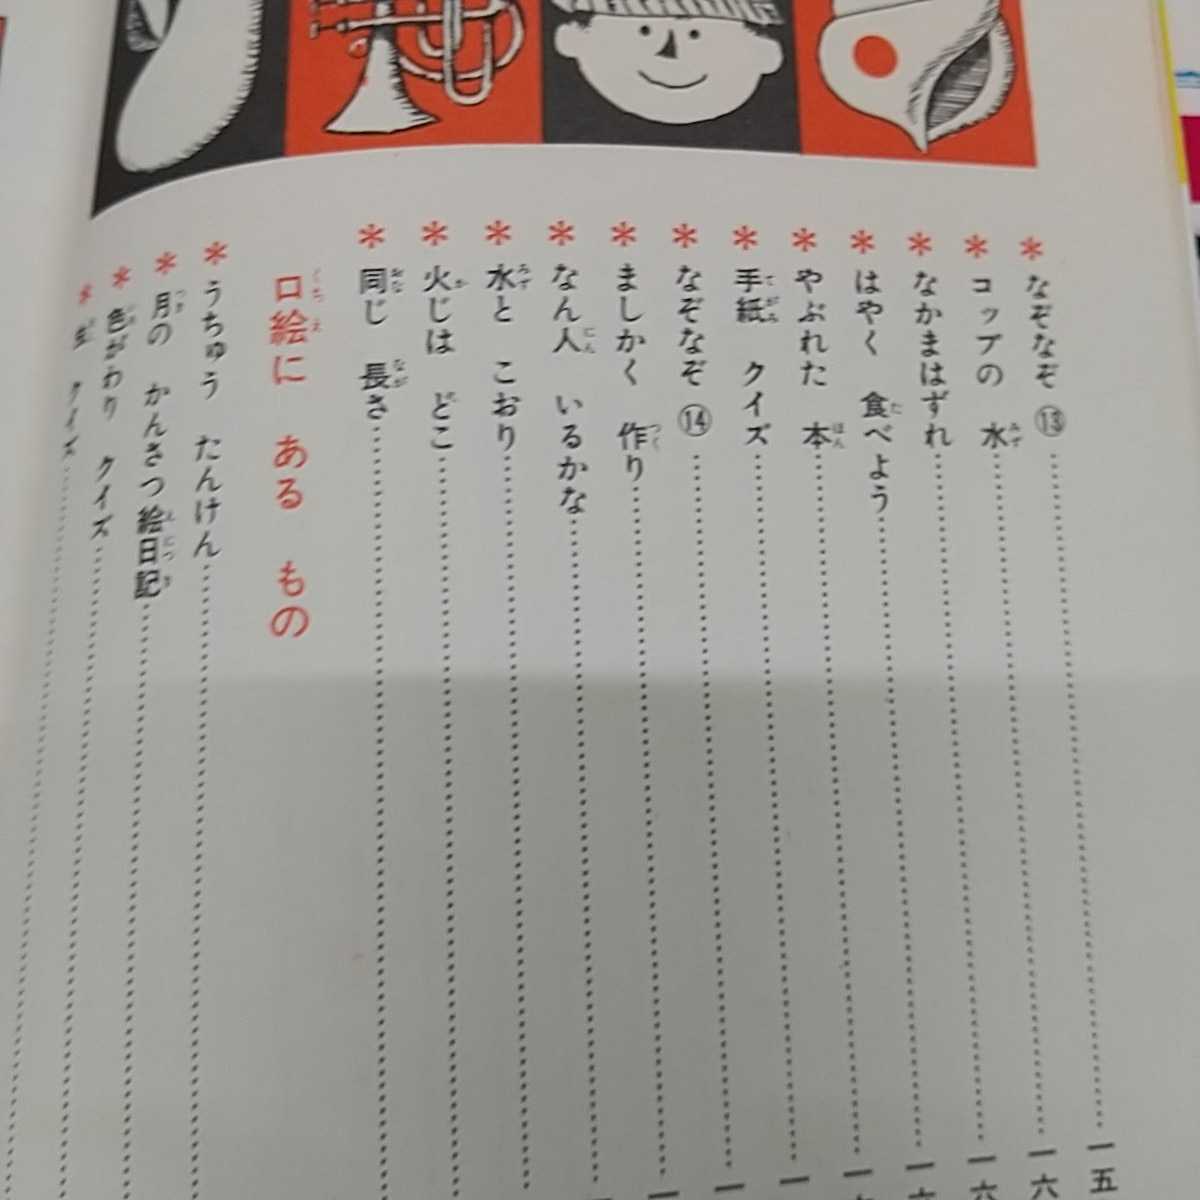 なぞなぞ ⑬
コップの 水
なかまはずれ
はやく 食べよう
やぶれた 本
手紙 クイズ
なぞなぞ ⑭
ましかく 作り
なん人 いるかな
水と こおり
火じは どこ
同じ 長さ
口絵に ある もの
うちゅう たんけん
月の かんさつ絵日記
色がわり クイズ
クイズ